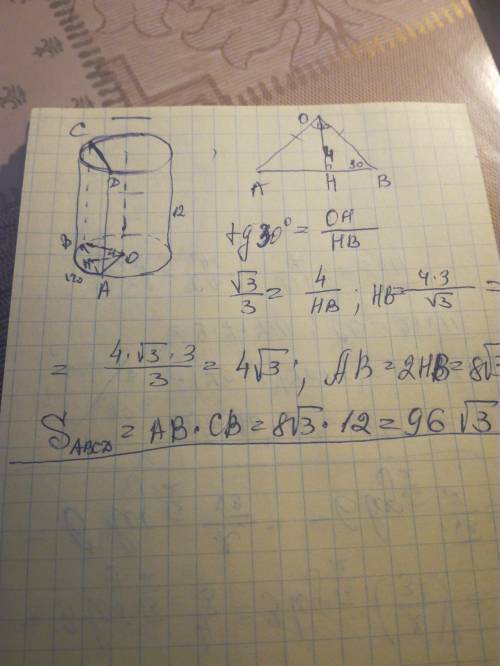 C
D
12
B
4
H
O
120
A
O
4
30
A
H
B
tg 30° = OH/HB
√3/3 = 4/HB ; HB = 4·3/√3 =
= 4·√3·3/3 = 4√3 ; AB = 2HB = 8√3
S_ABCD = AB · CB = 8√3 · 12 = 96 √3